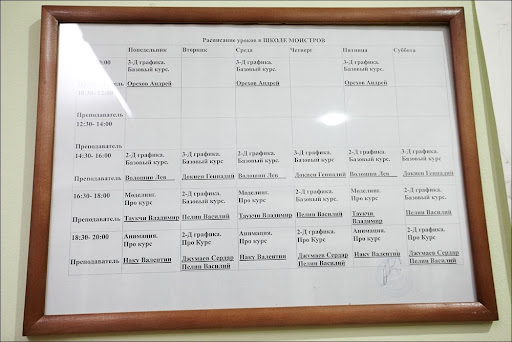 Расписание уроков в ШКОЛЕ МОНСТРОВ
Понедельник Вторник Среда Четверг Пятница Суббота
3-Д графика. 3-Д графика. 3-Д графика.
Базовый курс. Базовый курс. Базовый курс.
Преподаватель Орехов Андрей Орехов Андрей Орехов Андрей
Преподаватель
12:30- 14:00
14:30- 16:00 2-Д графика. 3-Д графика. 2-Д графика. 3-Д графика. 2-Д графика. 3-Д графика.
Базовый курс. Базовый курс. Базовый курс. Базовый курс. Базовый курс. Базовый курс.
Преподаватель Волошин Лев Докиен Геннадий Волошин Лев Докиен Геннадий Волошин Лев Докиен Геннадий
16:30- 18:00 Моделинг. 2-Д графика. Моделинг. 2-Д графика. Моделинг. 2-Д графика.
Про курс Про Курс Про курс Про Курс Про курс Про Курс
Преподаватель Таукчи Владимир Пелин Василий Таукчи Владимир Пелин Василий Таукчи Пелин Василий
Владимир
18:30- 20:00 Анимация. 2-Д графика. Анимация. 2-Д графика. Анимация. 2-Д графика.
Про курс Про Курс Про курс Про Курс Про курс Про Курс
Преподаватель Наку Валентин Джумаев Сердар Наку Валентин Джумаев Сердар Наку Валентин Джумаев Сердар
Пелин Василий Пелин Василий Пелин Василий